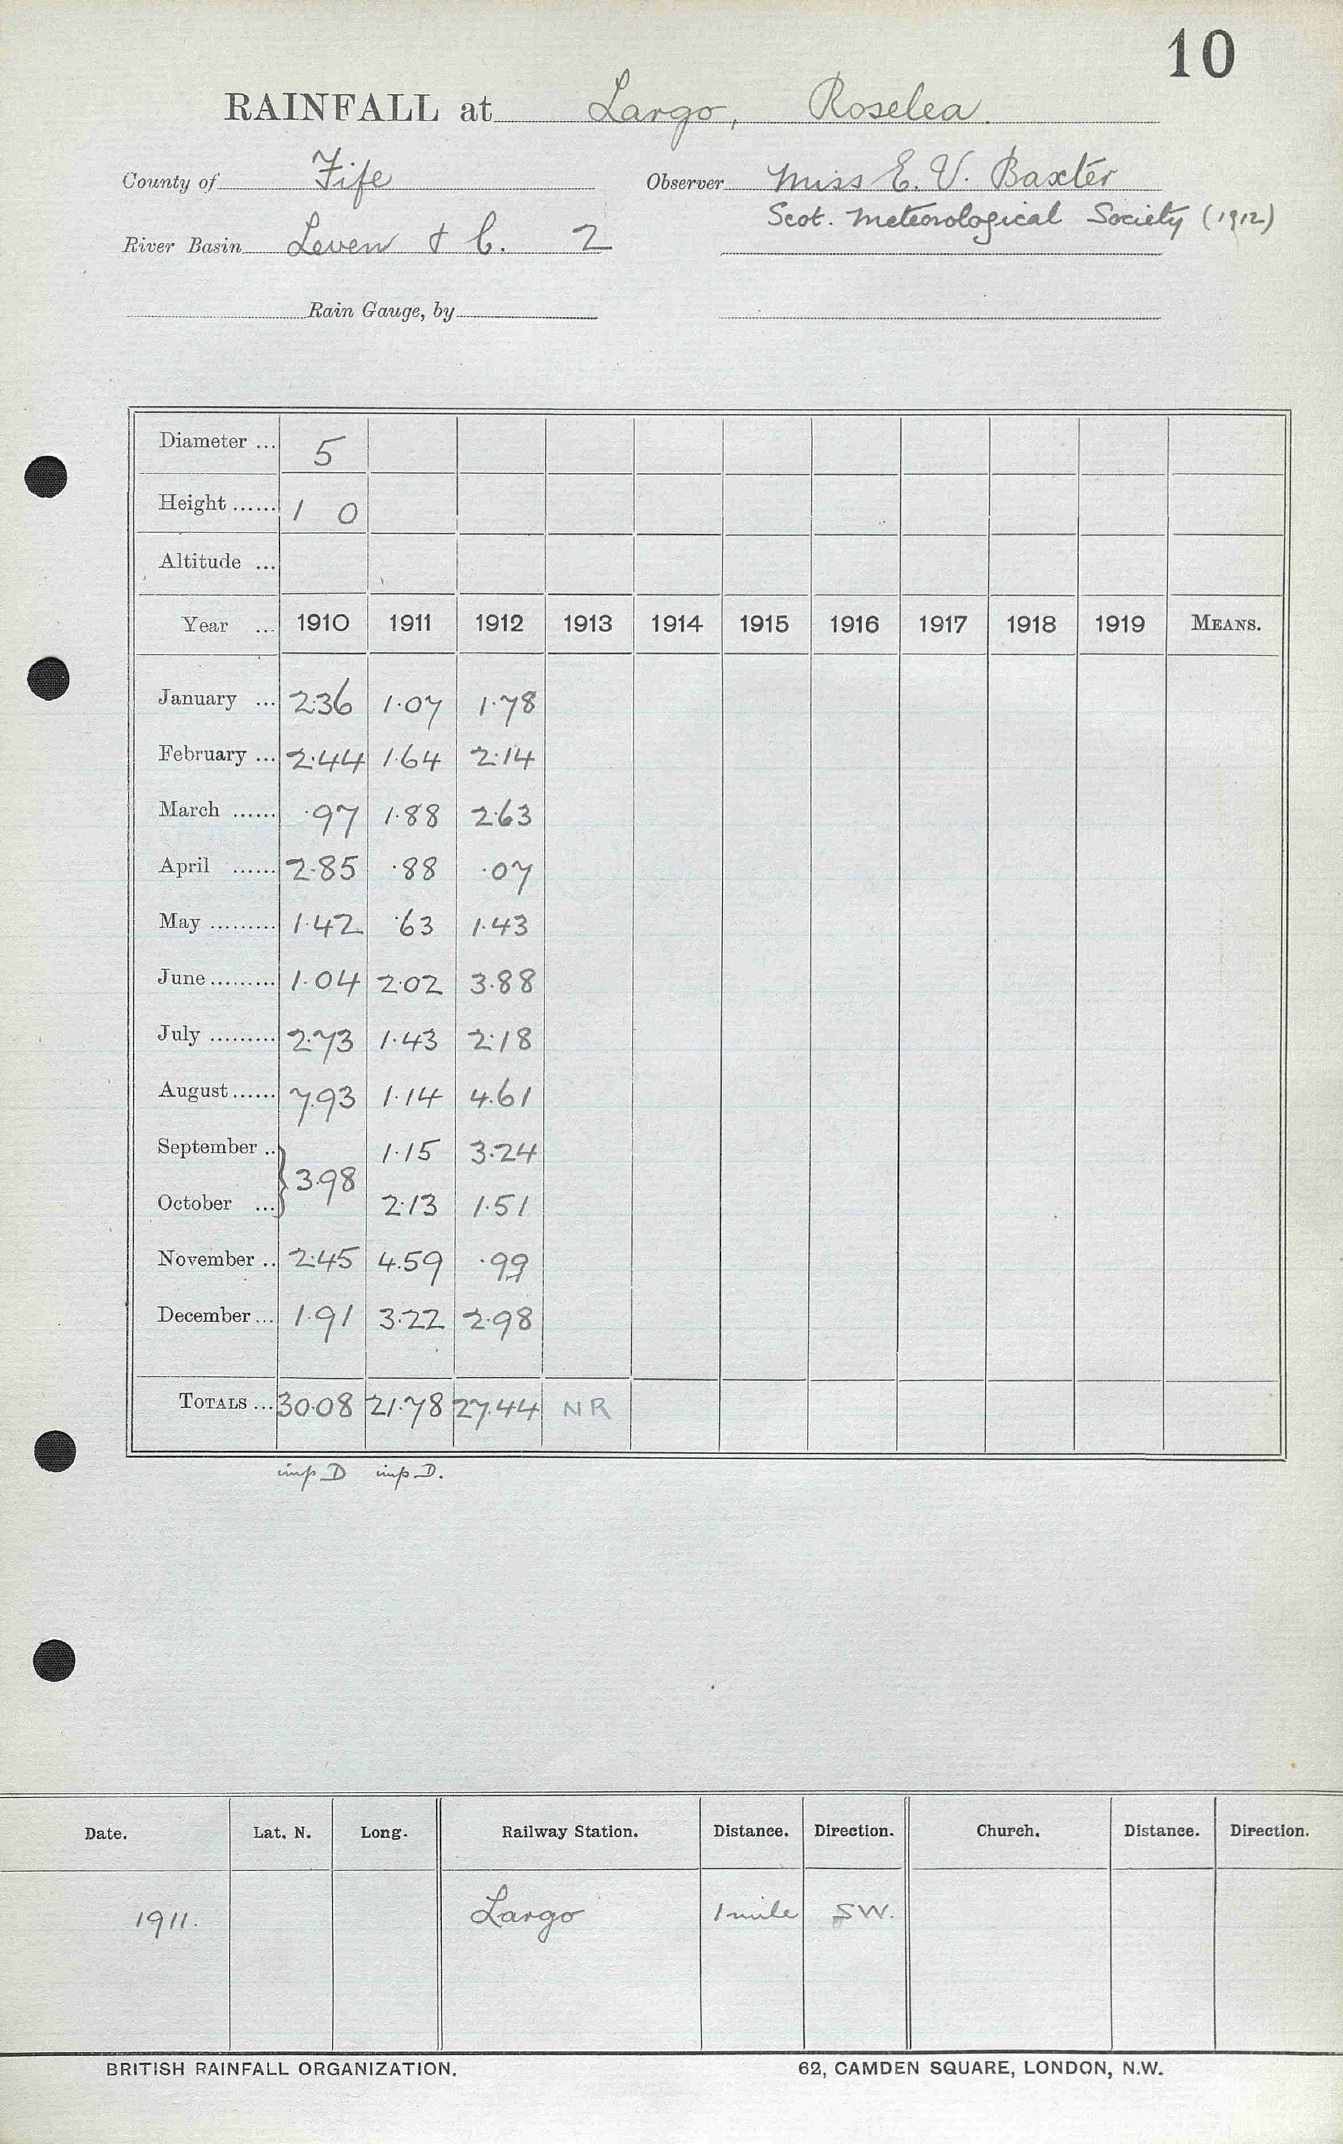 10
RAINFALL at Largo, Roselea.
County of Fife Observer Miss E. V. Baxter
Scot. Meteorological Society (1912)
River Basin Leven & C. 2
Rain Gauge, by
Diameter ... 5
Height ...... 1 0
Altitude ...
Year ... 1910 1911 1912 1913 1914 1915 1916 1917 1918 1919 MEANS.
January ... 2.36 1.07 1.78
February ... 2.44 1.64 2.14
March ...... .97 1.88 2.63
April ...... 2.85 .88 .07
May ......... 1.42 .63 1.43
June ......... 1.04 2.02 3.88
July ......... 2.73 1.43 2.18
August ...... 7.93 1.14 4.61
September .. 1.15 3.24
} 3.98
October ... 2.13 1.51
November .. 2.45 4.59 .99
December ... 1.91 3.22 2.98
TOTALS ... 30.08 21.78 27.44 NR
imp D imp D.
Date. Lat. N. Long. Railway Station. Distance. Direction. Church. Distance. Direction.
1911. Largo 1 mile SW.
BRITISH RAINFALL ORGANIZATION. 62, CAMDEN SQUARE, LONDON, N.W.